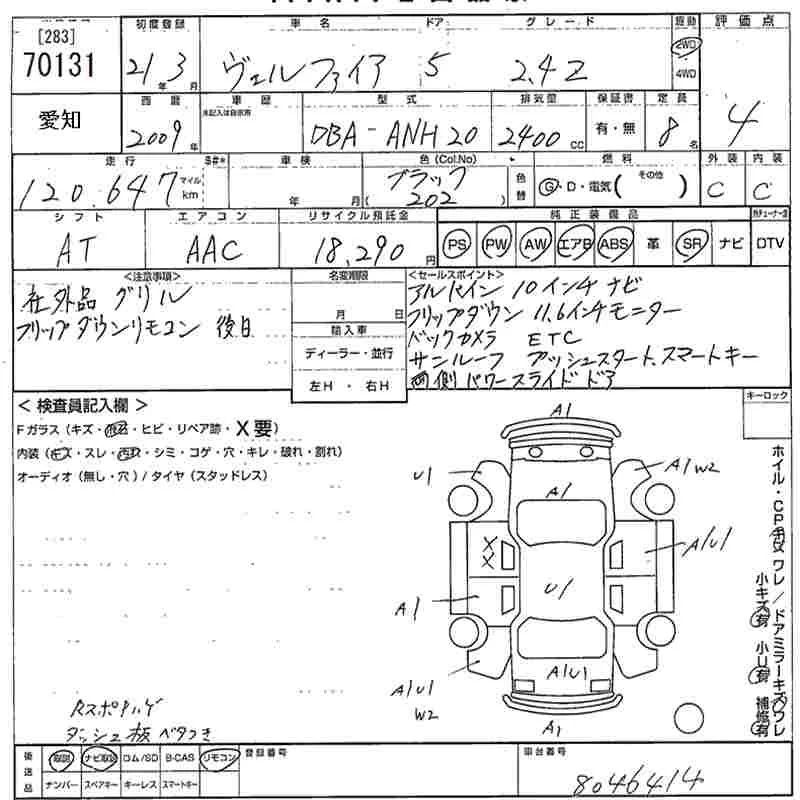 [283]
70131
初度登録
車名
ドア
グレード
駆動
評価点
21年 3月
ヴェルファイア
5
2.4Z
2WD
4WD
4
愛知
西暦
車歴
型式
排気量
保証書
定員
2009年
未記入は自家用
DBA-ANH20
2400cc
有・無
8名
走行
車検
色(Col.No)
色替
燃料
その他
外装
内装
120,647
マイル
km
年 月
ブラック
( 202 )
G・D・電気( )
C
C
シフト
エアコン
リサイクル預託金
純正装備品
AT
AAC
18,290円
PS PW AW エアB ABS 革 SR ナビ DTV
<注意事項>
社外品 グリル
フリップダウンリモコン 後日
名変期限
月 日
輸入車
ディーラー・並行
左H ・ 右H
<セールスポイント>
アルパイン 10インチ ナビ
フリップダウン 11.6インチモニター
バックカメラ ETC
サンルーフ プッシュスタート、スマートキー
両側パワースライドドア
キーロック
<検査員記入欄>
Fガラス(キズ・飛石・ヒビ・リペア跡・X要)
内装(キズ・スレ・凹・シミ・コゲ・穴・キレ・破れ・割れ)
オーディオ(無し・穴)/タイヤ(スタッドレス)
A1
U1
A1W2
A1
XX
A1U1
U1
A1
A1U1
A1U1
W2
A1
ホイル・CPキズワレ/ドアミラーキズワレ
小キズ有 小U有 補修有
ダッシュ板ベタつき
後送品
取説 ナビ取説 ロム/SD B-CAS リモコン
ナンバー スペアキー キーレス スマートキー
登録番号
車台番号
8046414